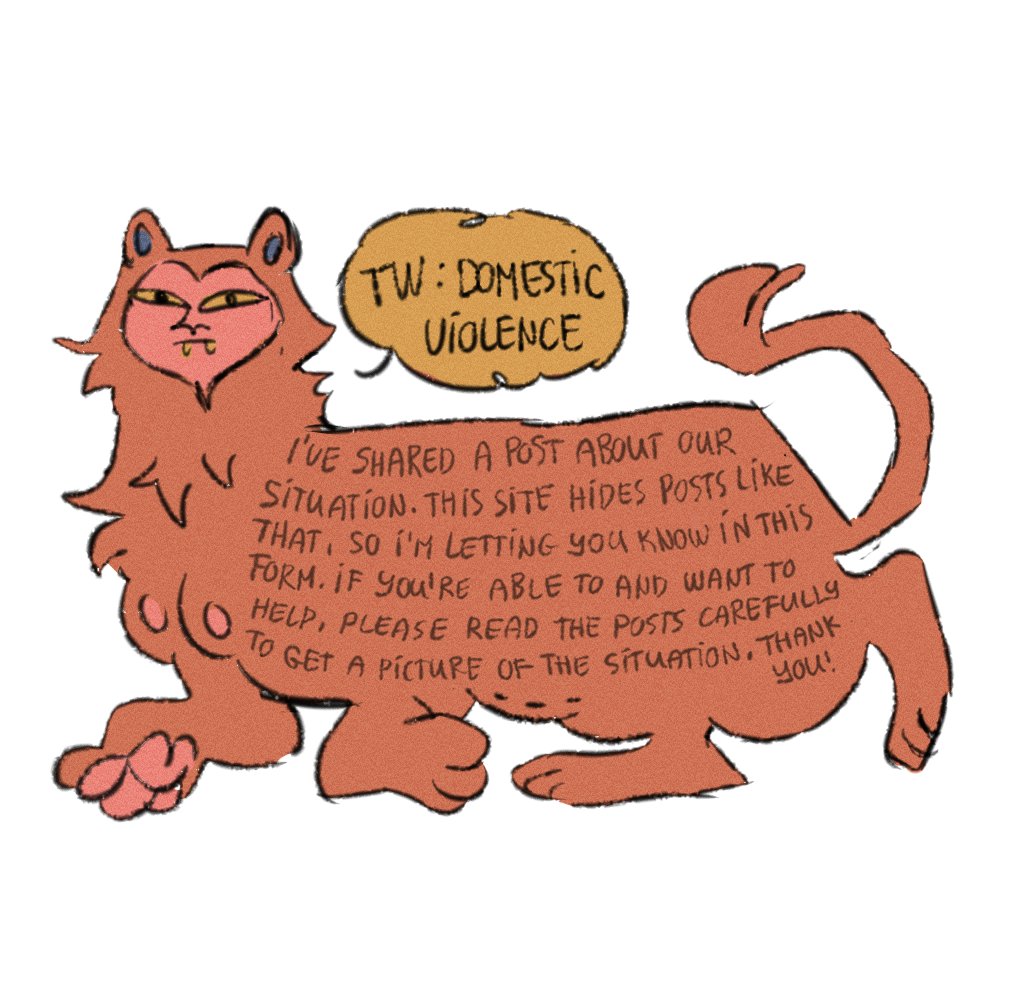 TW: DOMESTIC
ViOLENCE
I'VE SHARED A POST ABOUT OUR
SiTUATiON. THiS SiTE HiDES POSTS LiKE
THAT, SO i'M LETTiNG YOU KNOW iN THiS
FORM. iF YOU'RE ABLE TO AND WANT TO
HELP, PLEASE READ THE POSTS CAREFULLY
TO GET A PiCTURE OF THE SiTUATiON. THANK
YOU!